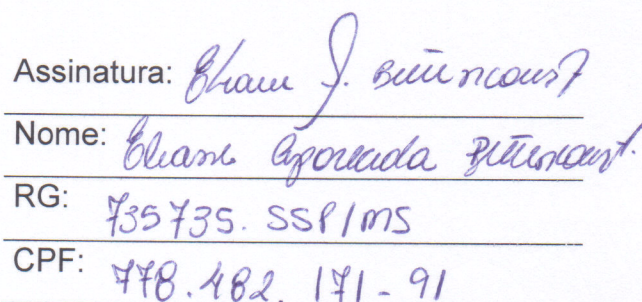 Assinatura: Eliane A. Bittencourt
Nome: Eliane Aparecida Bittencourt.
RG: 735735. SSP/MS
CPF: 778.482.171-91